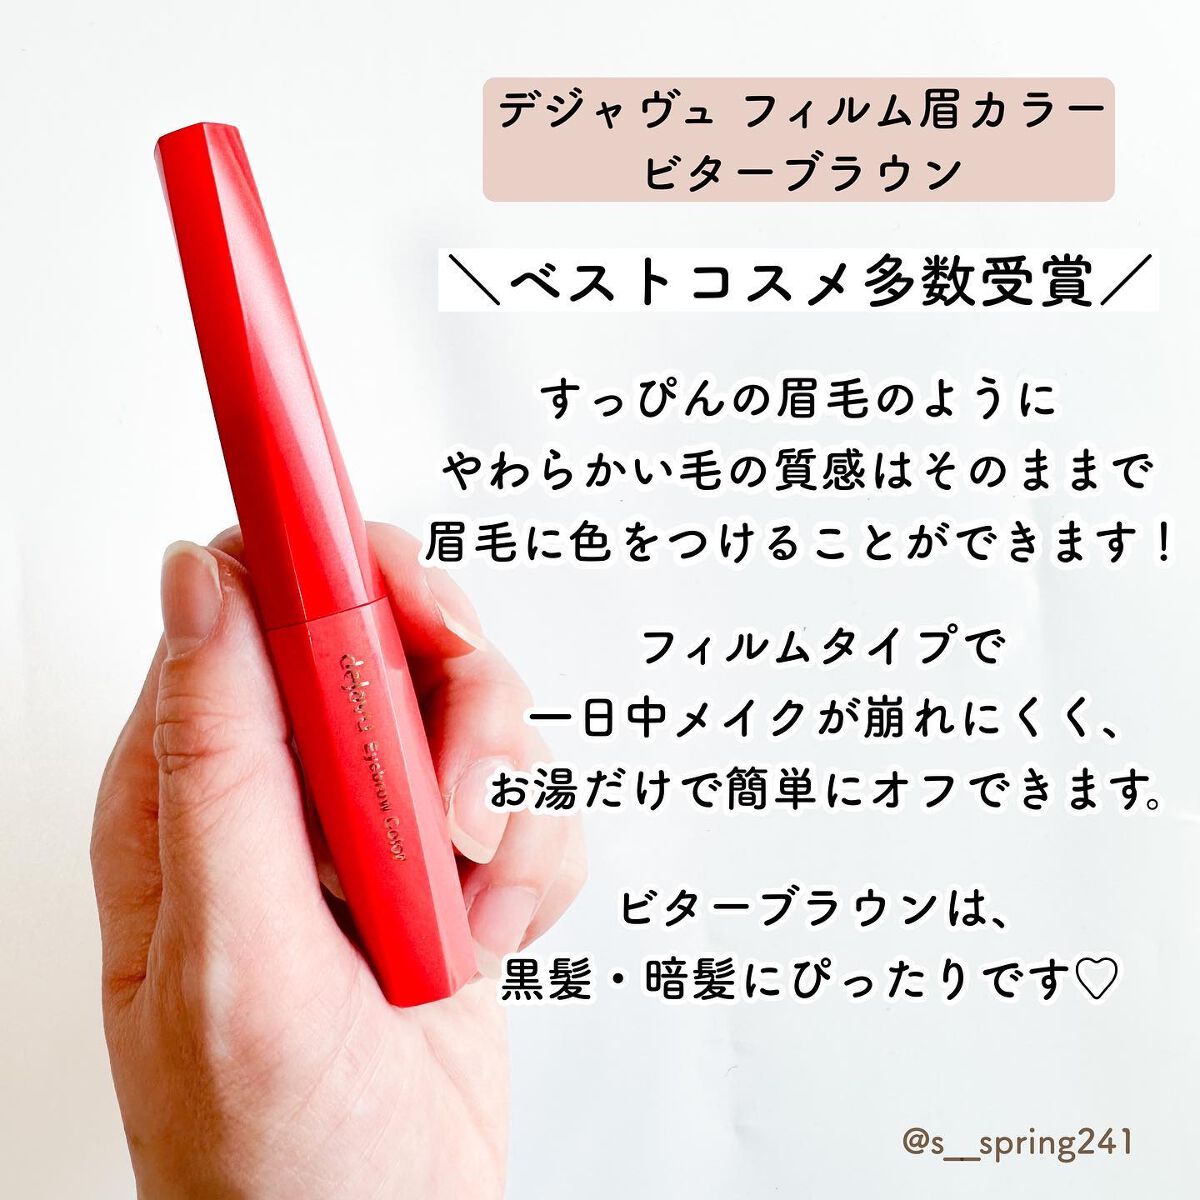 デジャヴュ フィルム眉カラー
ビターブラウン
＼ベストコスメ多数受賞／
すっぴんの眉毛のように
やわらかい毛の質感はそのままで
眉毛に色をつけることができます！
フィルムタイプで
一日中メイクが崩れにくく、
お湯だけで簡単にオフできます。
ビターブラウンは、
黒髪・暗髪にぴったりです♡
dejavu Eyebrow Color
@s__spring241